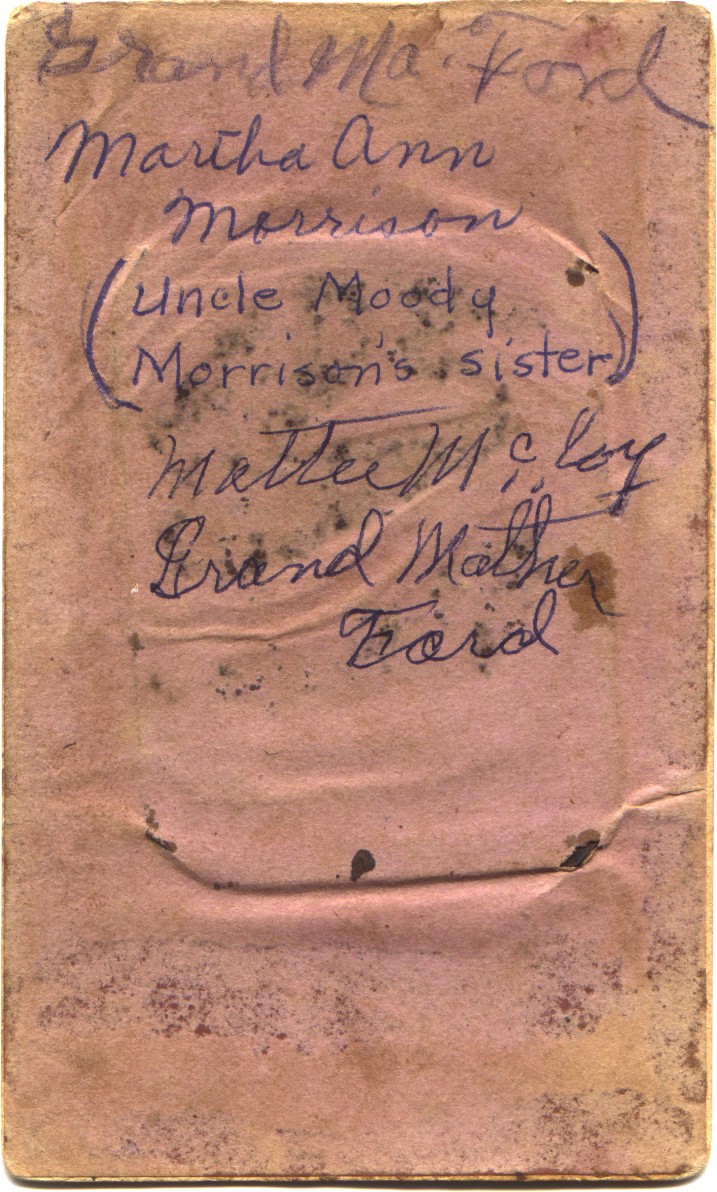 Grand Ma. Ford
Martha Ann
Morrison
(Uncle Moody
Morrison's sister)
Mattee McCloy
Grand Mother
Ford